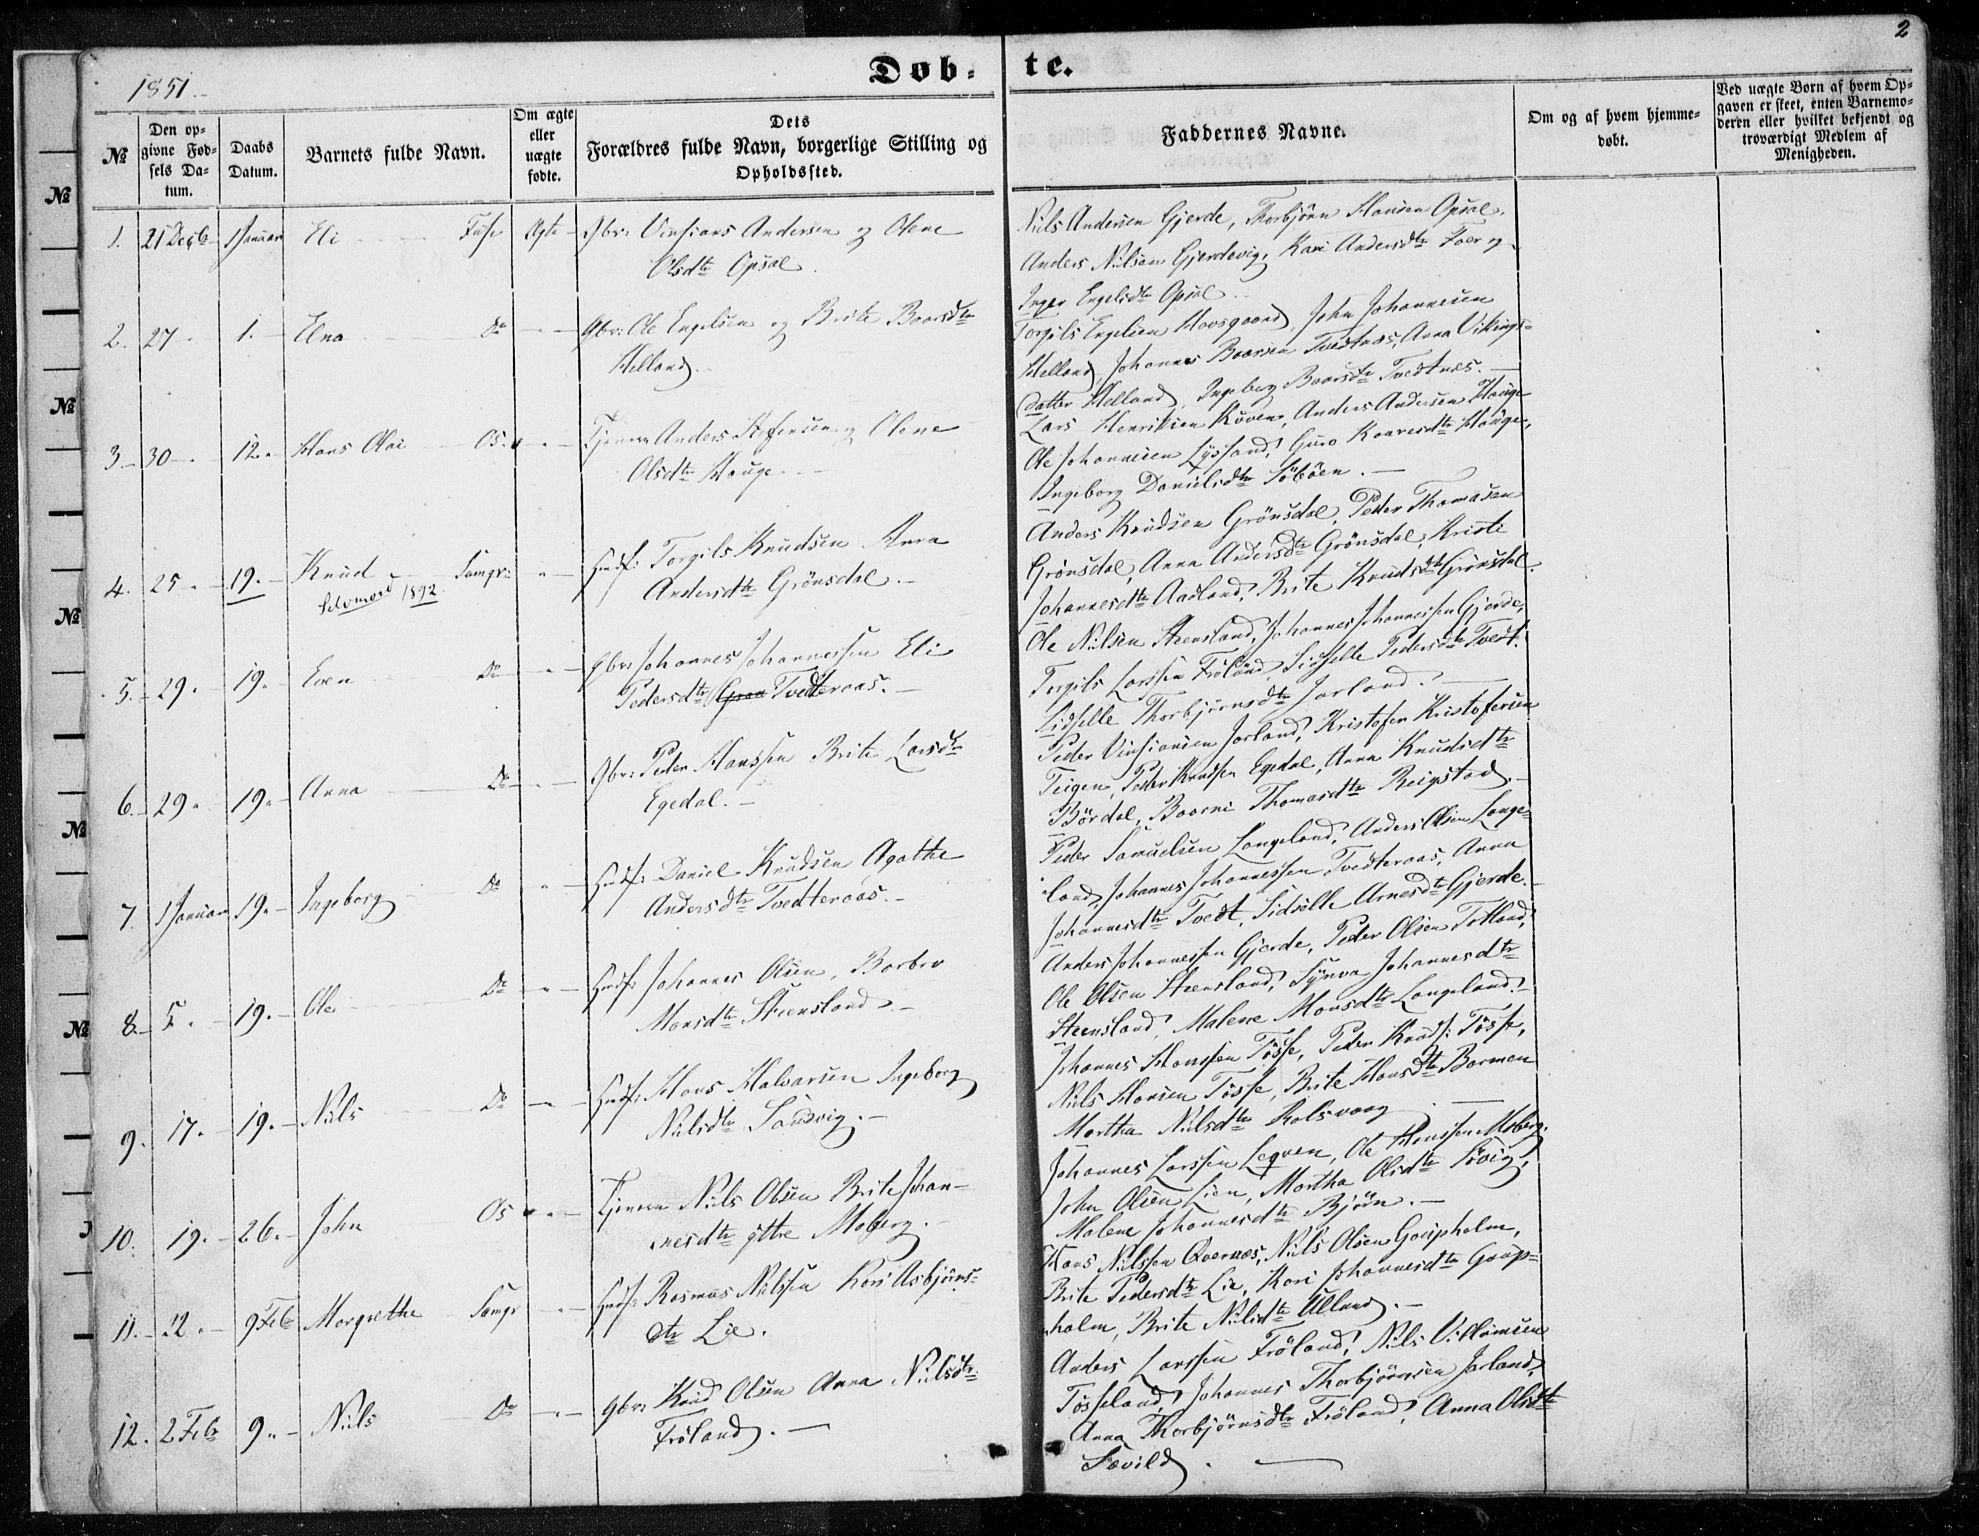 2
1851.
Døb-
te.
№
Den op-
givne Fød-
sels Da-
tum.
Daabs
Datum.
Barnets fulde Navn.
Om ægte
eller
uægte
fødte.
Dets
Forældres fulde Navn, borgerlige Stilling og
Opholdssted.
Faddernes Navne.
Om og af hvem hjemme-
døbt.
Ved uægte Børn af hvem Op-
gaven er skeet, enten Barnemo-
deren eller hvilket bekjendt og
troværdigt Medlem af
Menigheden.
1. 21 Decb 1 Januar Eli Fuse Ægte Gbr: Vinsians Andersen og Olene
Olsdtr Opsal.
Niels Andersen Gjerde, Thorbjörn Hansen Opsal,
Anders Nilsen Gjerdevig, Kari Andersdtr
Inger Engelsdtr Opsal.
2. 27 1. Elna Do Gbr: Ole Engelsen og Brite Baarsdtr
Helland.
Torgils Engelsen Hovsgaard, John Johannesen
Helland, Johannes Baarsen Tvedtnæs, Anna Vikings-
datter Helland, Ingeborg Baarsdtr Tvedtnæs.
3 30 12. Hans Olai Os. Tjenere Anders Stefensen og Olene
Olsdtr Hauge.
Lars Henriksen Röven, Anders Andersen Hauge
Ole Johannesen Lyssand, Guro Kaaresdtr Hauge,
Ingeborg Danielsdtr Söböen.
4. 25 19. Knud Samgr: Husf: Torgils Knudsen Anna
Selvmord 1892
Andersdtr Grönsdal.
Anders Knudsen Grönsdal, Peder Thomasen
Grönsdal, Anna Andersdtr Grönsdal, Kristi
Johannesdtr Aadland, Brite Knudsdtr Grönsdal.
5. 29. 19. Even Do Gbr: Johannes Johannessen Eli
Pedersdtr Tvedteraas.
Ole Nilsen Steensland, Johannes Johannessen Gjerde,
Torgils Larssen Fröland, Sidselle Pedersdtr Tvedt.
Sidselle Thorbjörnsdtr Jarland.
6. 29. 19. Anna Do Gbr: Peder Hanssen Brite Larsdtr
Egedal.
Peder Vinsiansen Jarland, Kristofer Kristofersen
Teigen, Peder Knudsen Egedal, Anna Knudsdtr
Bördal, Baarni Thomasdtr Reigstad.
7. 1 Januar 19. Ingeborg Do Husf: Daniel Knudsen Agathe
Andersdtr Tvedteraas.
Peder Samuelsen Langeland, Anders Olsen Lange-
land, Johannes Johannessen Tvedteraas, Anna
Johannesdtr Tvedt, Sidselle Arnesdtr Gjerde.
8. 5. 19. Ole Do Husf: Johannes Olsen, Barbro
Monsdtr Steensland.
Anders Johannessen Gjerde, Peder Olsen Totland,
Ole Olsen Steensland, Synva Johannesdtr
Steensland, Malene Monsdtr Langeland.
9. 17. 19. Nils Do Husf: Hans Halvarsen Ingeborg
Nilsdtr Sandvig.
Johannes Hanssen Tösse, Peder Knuds: Tösse,
Nils Hansen Tösse, Brite Hansdtr Barmen
Martha Nilsdtr Rolsvaag
10. 19. 26. John Os Tjenere Nils Olsen Brite Johan-
nesdtr yttre Moberg.
Johannes Larssen Leqven, Ole Hanssen Moberg,
John Olsen Lien, Martha Olsdtr Sövig,
Malene Johannesdtr Björn.
11. 22. 9 Feb Margrethe Samgr Husf: Rasmus Nilssen Kari Asbjörns-
dtr Lie.
Hans Nilssen Qvernæs, Nils Olsen Gaupholm,
Brite Pedersdtr Lie, Kari Johannesdtr Gaup-
holm, Brite Nilsdtr Ulland.
12. 2 Feb 9. Nils Do Gbr: Knud Olsen Anna Nilsdtr
Fröland.
Anders Larssen Fröland, Nils Villumsen
Tösseland, Johannes Thorbjörnsen Jarland,
Anna Thorbjörnsdtr Fröland, Anna Olsdtr
Sævild.